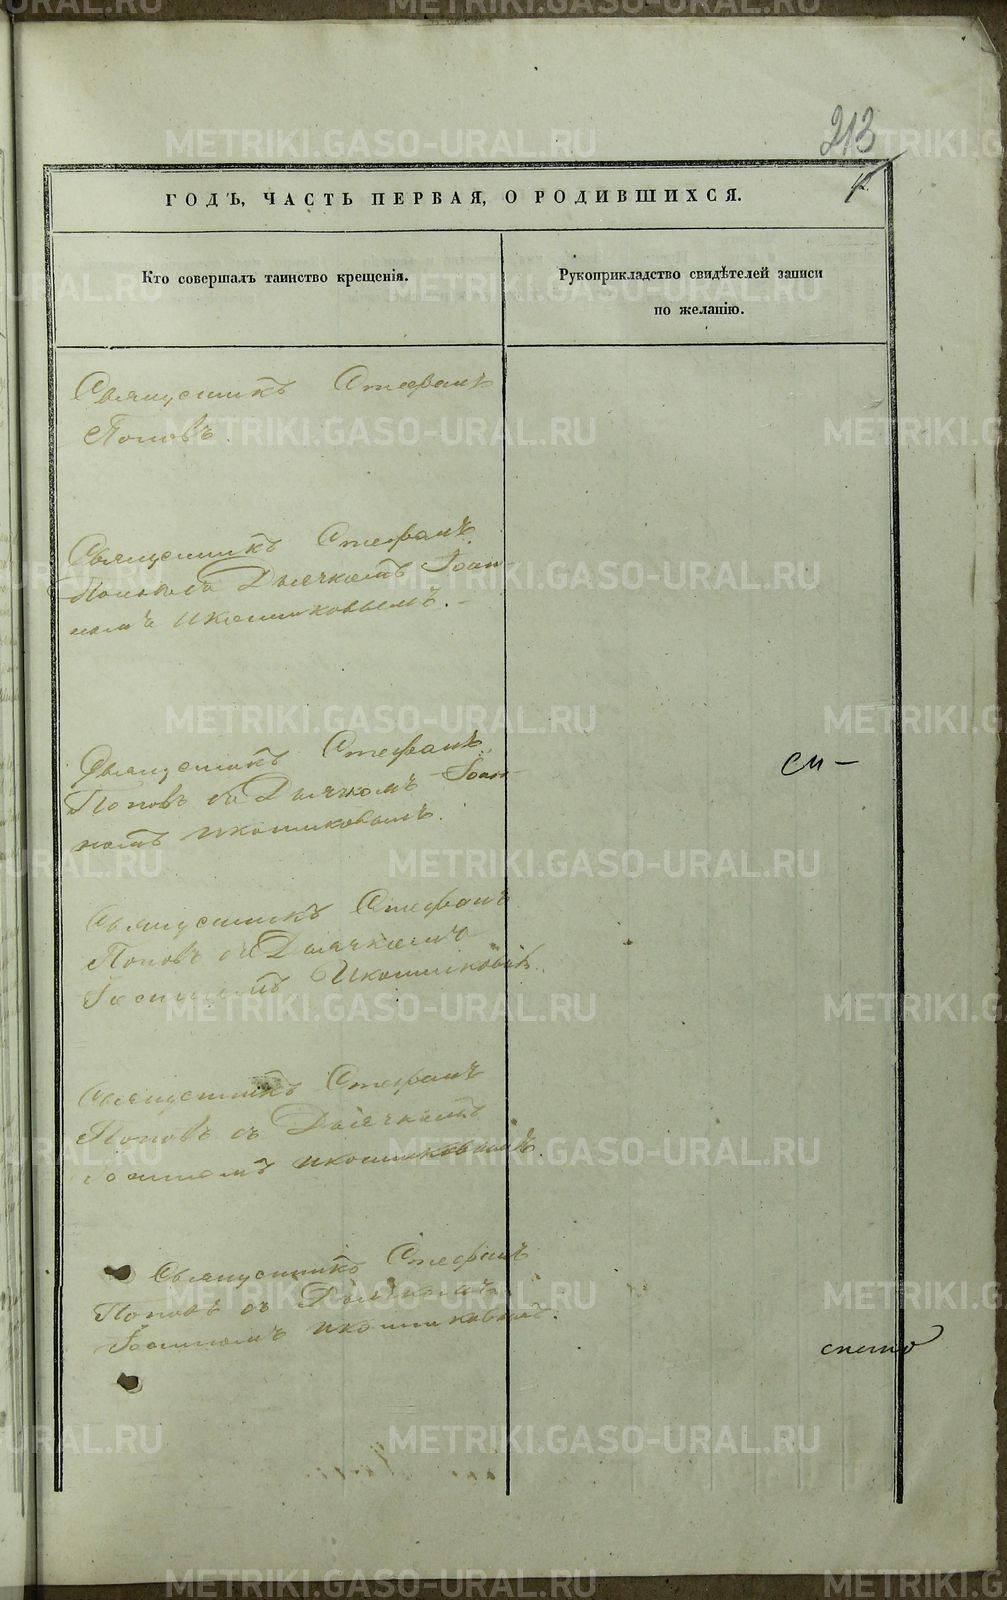 213
ГОДЪ, ЧАСТЬ ПЕРВАЯ, О РОДИВШИХСЯ.
Кто совершалъ таинство крещенія.
Рукоприкладство свидѣтелей записи
по желанію.
Священникъ Стефанъ
Поповъ.
Священникъ Стефанъ
Поповъ съ Дьячкомъ Іоан-
номъ Иконниковымъ. –
Священникъ Стефанъ
Поповъ съ Дьячкомъ Іоан-
номъ Иконниковымъ.
Священникъ Стефанъ
Поповъ съ Дьячкомъ
Іоанномъ Иконниковымъ.
Священникъ Стефанъ
Поповъ съ Дьячкомъ
Іоанномъ Иконниковымъ.
Священникъ Стефанъ
Поповъ съ Дьячкомъ
Іоанномъ Иконниковымъ.
METRIKI.GASO-URAL.RU